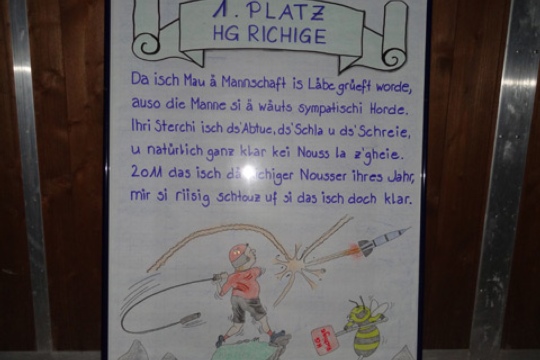 1. PLATZ
HG RICHIGE
Da isch Mau ä Mannschaft is Läbe grüeft worde,
auso die Manne si ä wäuts sympatischi Horde.
Ihri Sterchi isch ds'Abtue, ds'Schla u ds'Schreie,
u natürlich ganz klar kei Nouss la z'gheie.
2011 das isch Nousser ihres Jahr,
mir si riisig schtouz uf si das isch doch klar.